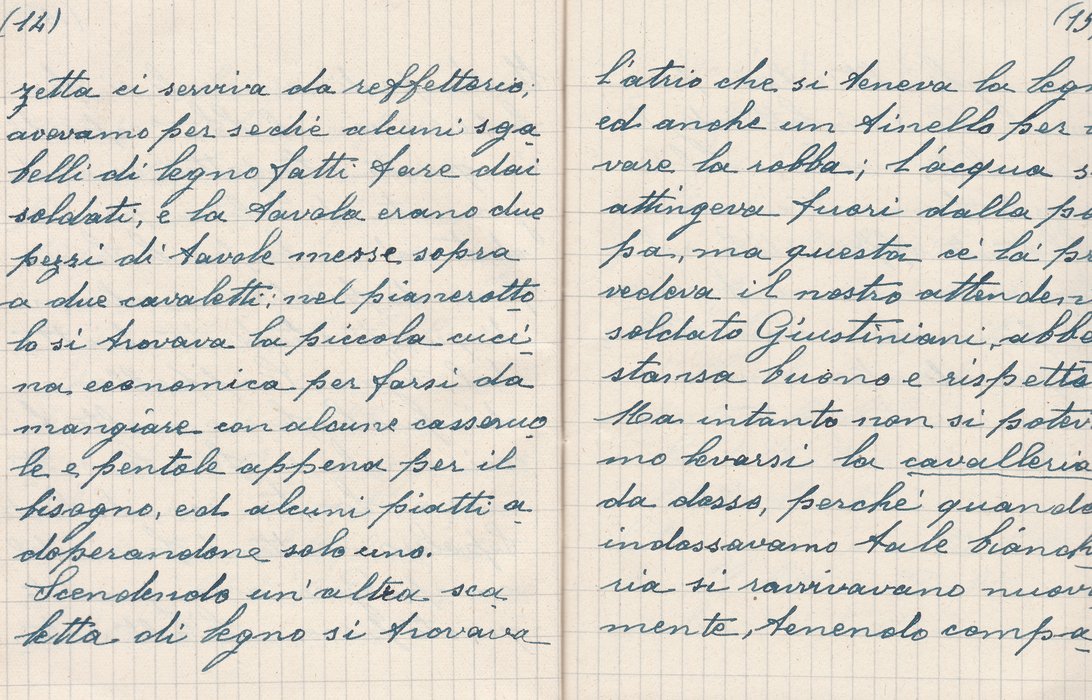 (14)
zetta ci serviva da reffettorio;
avevamo per sedie alcuni sga
belli di legno fatti fare dai
soldati, e la tavola erano due
pezzi di tavole messe sopra
a due cavaletti; nel pianerotto
lo si trovava la piccola cuci
na economica per farsi da
mangiare con alcune casseruo
le e pentole appena per il
bisogno, ed alcuni piatti a
doperandone solo uno.
Scendendo un'altra sca
letta di legno si trovava
(15)
l'atrio che si teneva la legn
ed anche un tinello per
vare la robba; l'acqua s
attingeva fuori dalla po
pa, ma questa ce là pr
vedeva il nostro attenden
soldato Giustiniani, abba
stansa buono e rispetto
Ma intanto non si potev
mo levarsi la cavalleria
da dosso, perchè quando
indossavamo tale bianch
ria si ravvivavano nuov
mente, tenendo compa